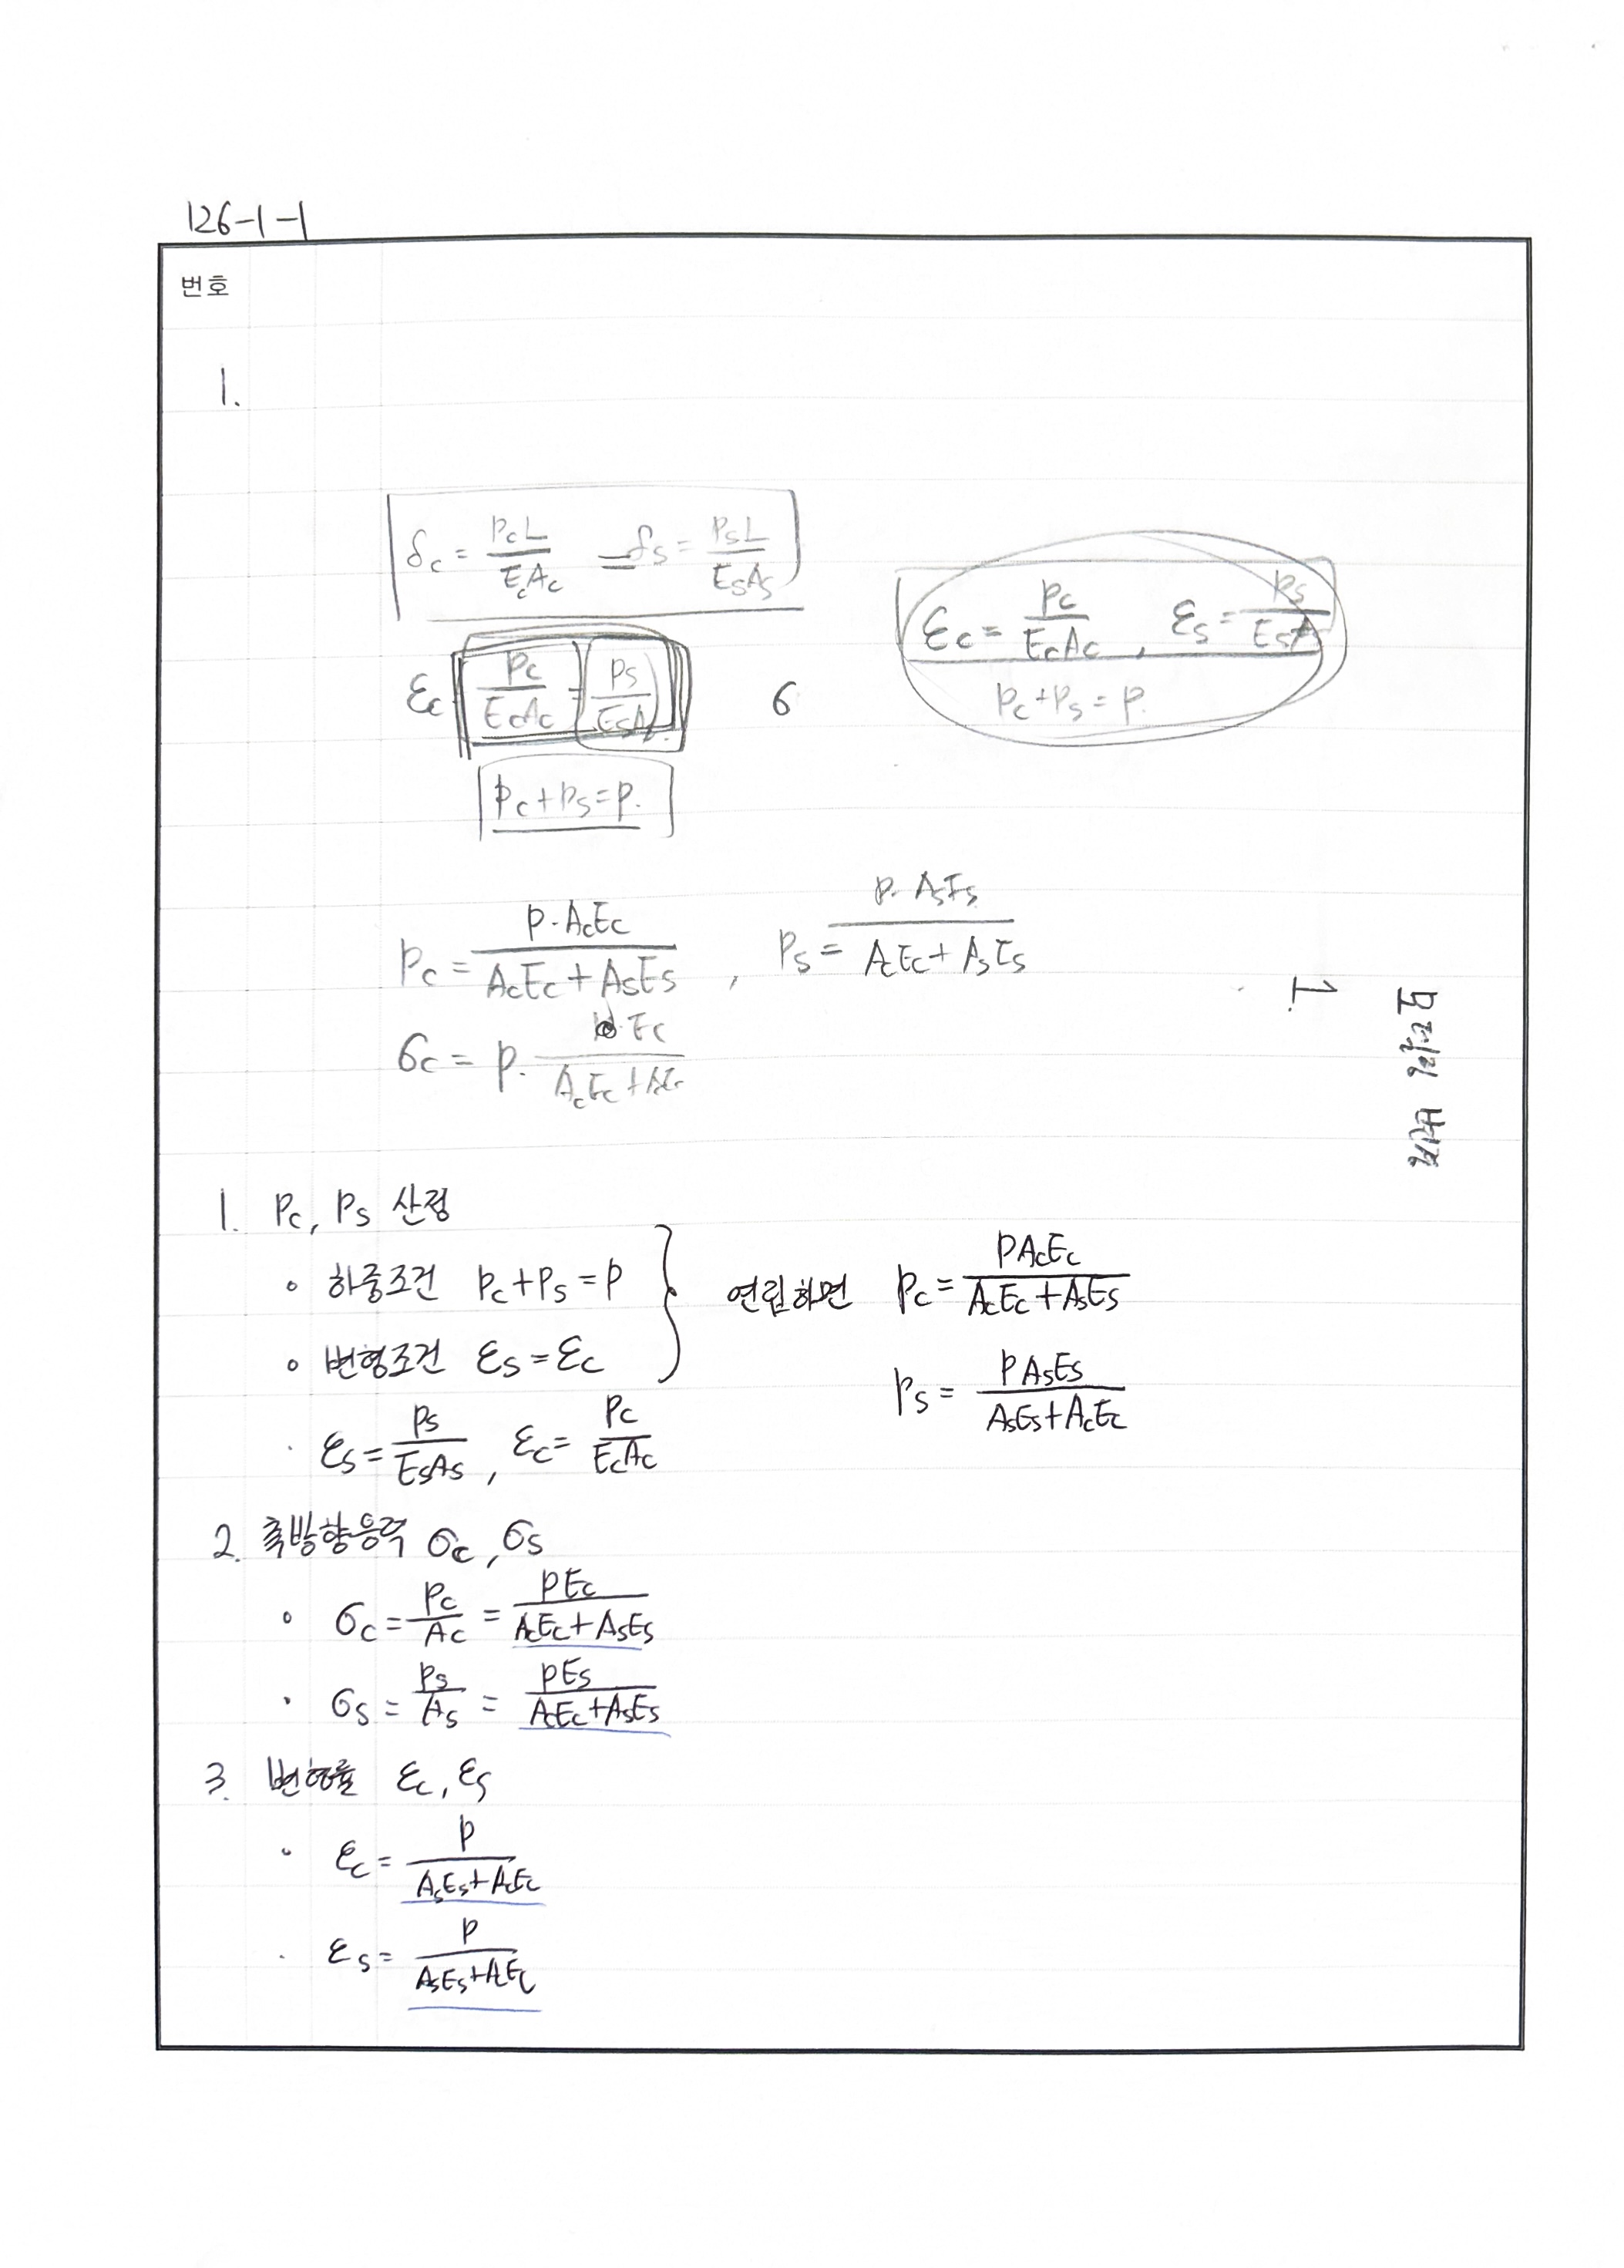 126-1-1
번호
1.
δc = PcL / EcAc = δs = PsL / EsAs
εc = Pc / EcAc , εs = Ps / EsA
Pc+Ps = P.
εc Pc / EcAc = Ps / EsA
6
Pc+Ps=P.
Pc = P·AcEc / AcEc + AsEs , Ps = P·AsEs / AcEc + AsEs
σc = P· Ec / AcEc + AsEs
1.
1. Pc, Ps 산정
∘ 하중조건 Pc+Ps = P
∘ 변형조건 εs = εc
연립하면 Pc = PAcEc / AcEc + AsEs
Ps = PAsEs / AsEs + AcEc
· εs = Ps / EsAs , εc = Pc / EcAc
2. 축방향응력 σc, σs
∘ σc = Pc / Ac = PEc / AcEc + AsEs
· σs = Ps / As = PEs / AcEc + AsEs
3. 변형률 εc, εs
∘ εc = P / AsEs + AcEc
· εs = P / AsEs + AcEc